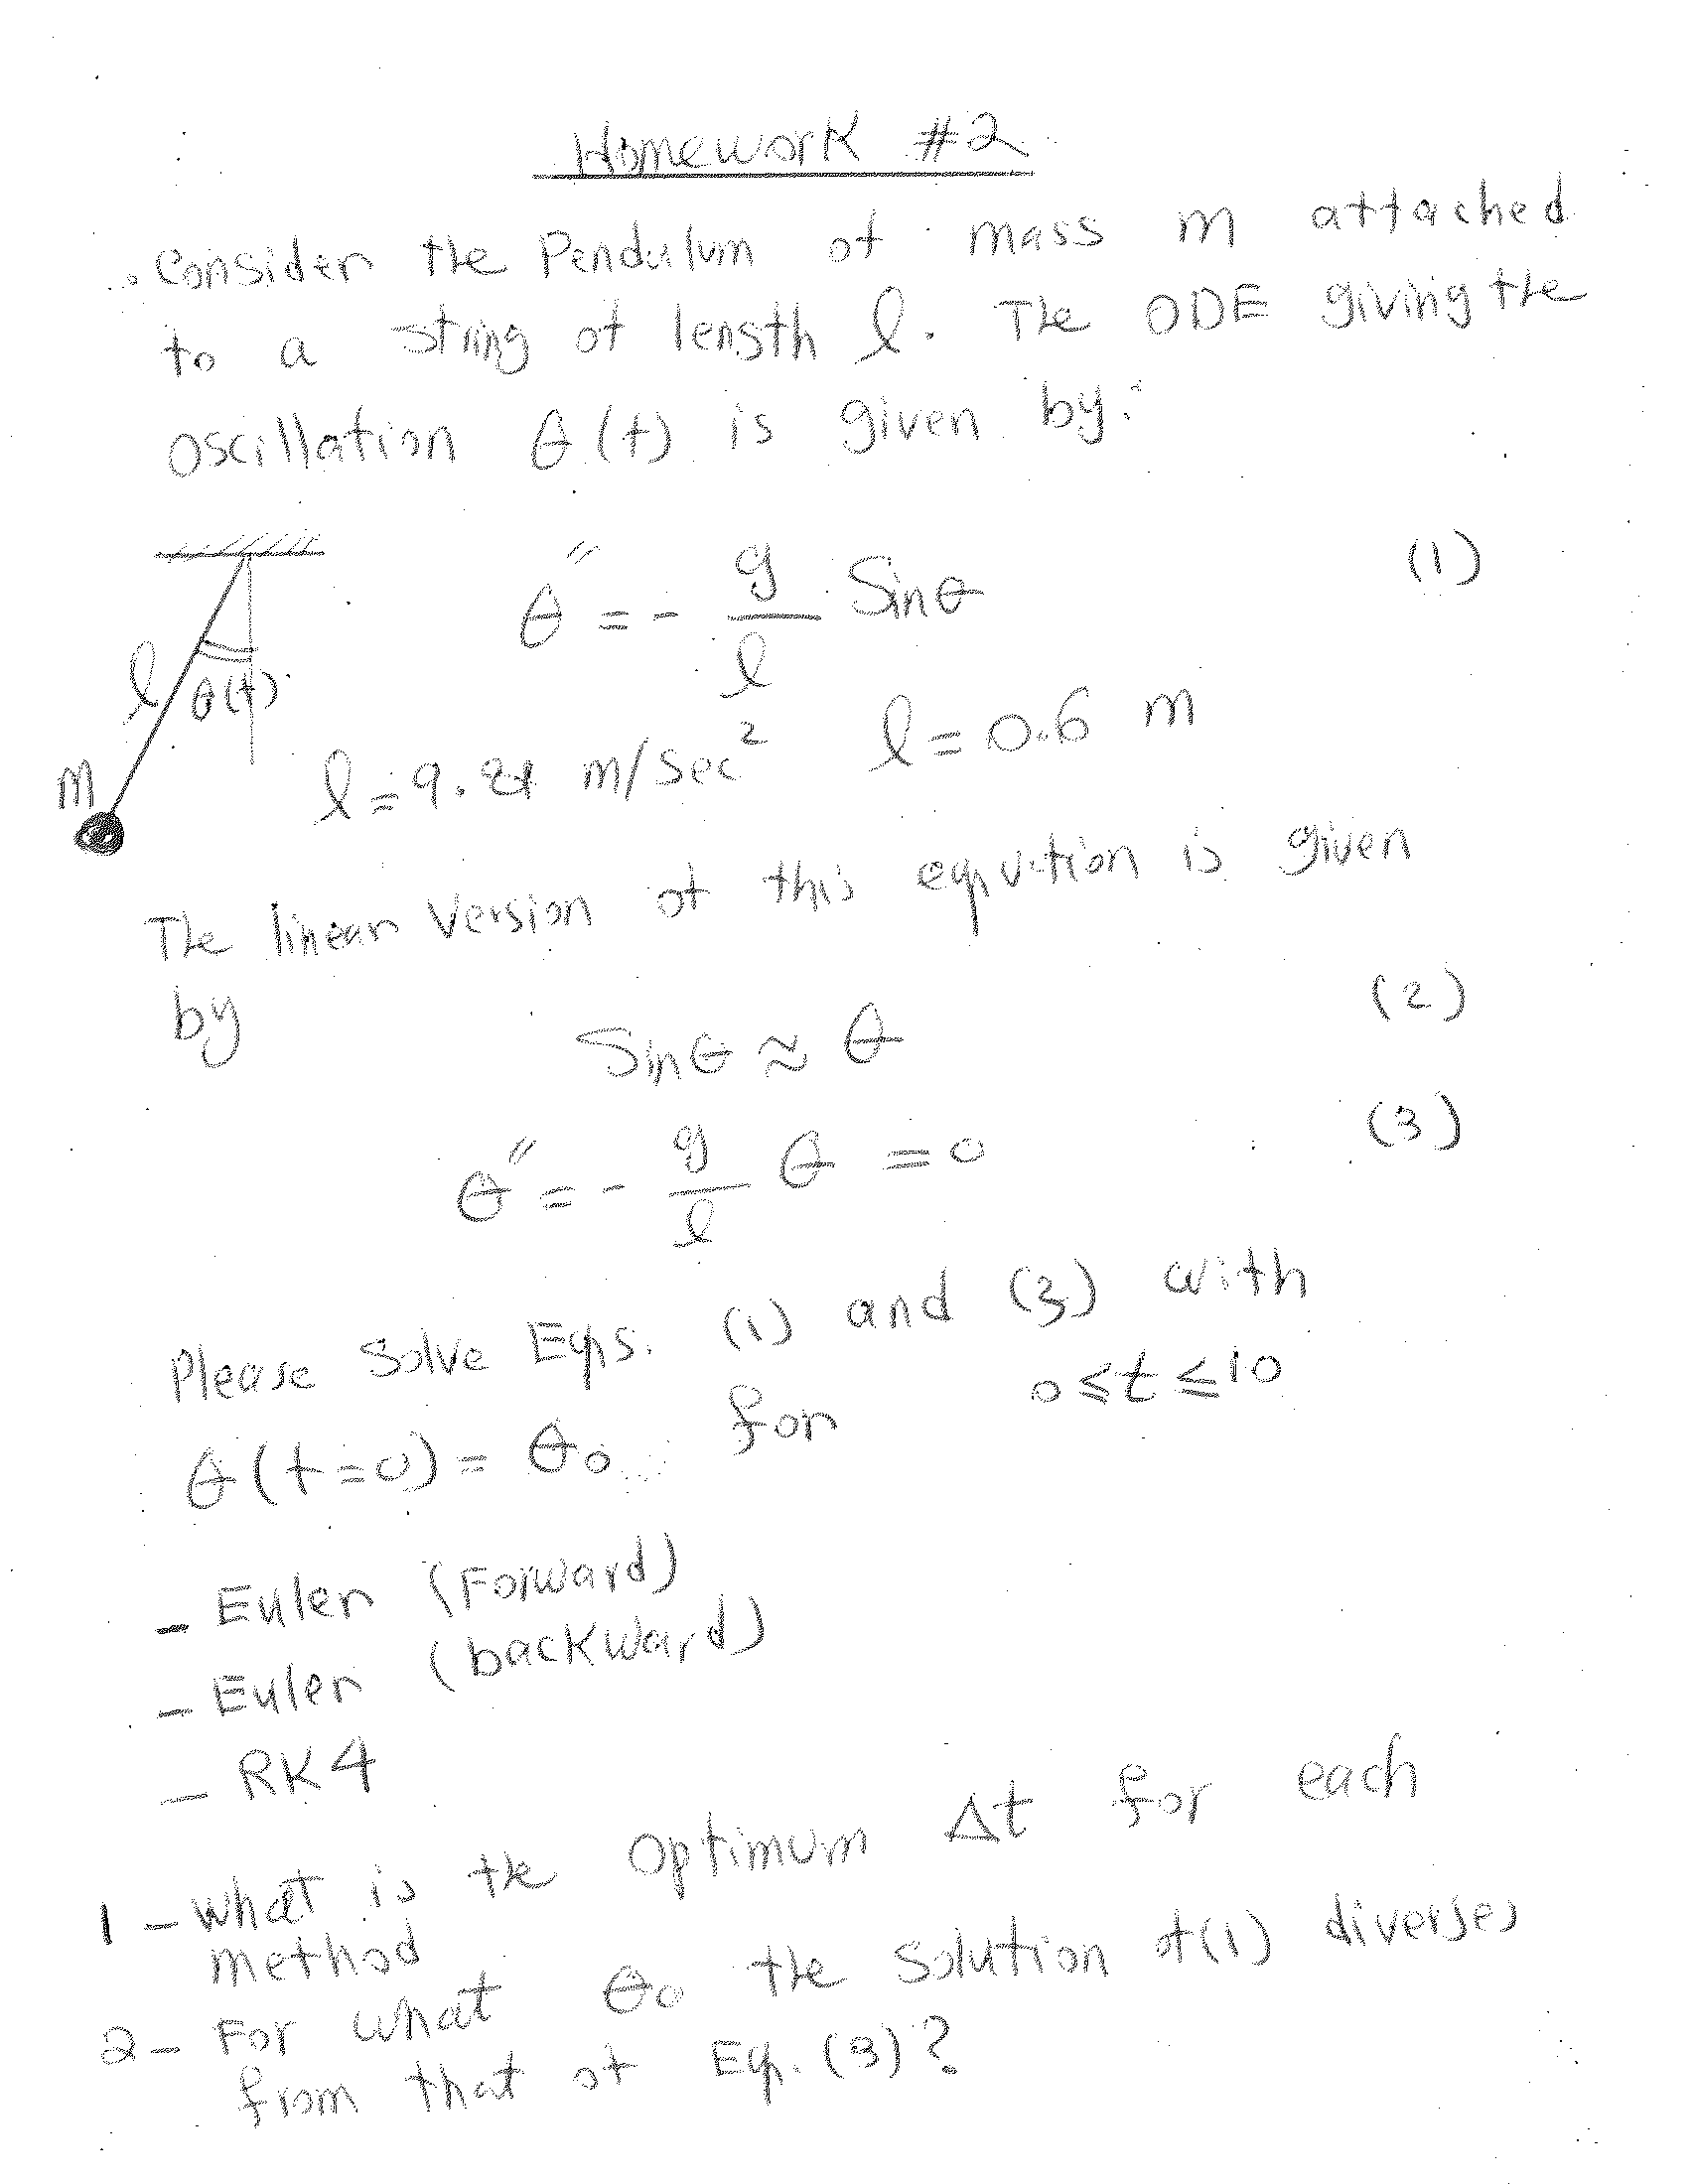 Homework #2
Consider the Pendulum of mass m attached
to a string of length l. The ODE giving the
oscillation θ(t) is given by:
θ'' = - g/l Sinθ (1)
l θ(t)
m
l = 9.81 m/sec² l = 0.6 m
The linear version of this equation is given
by
Sinθ ≈ θ (2)
θ'' = - g/l θ = 0 (3)
Please Solve Eqs. (1) and (3) with
θ(t=0) = θ₀ for 0 ≤ t ≤ 10
- Euler (Forward)
- Euler (backward)
- RK4
1 - What is the optimum Δt for each
method
2 - For what θ₀ the solution of (1) diverges
from that of Eq. (3)?